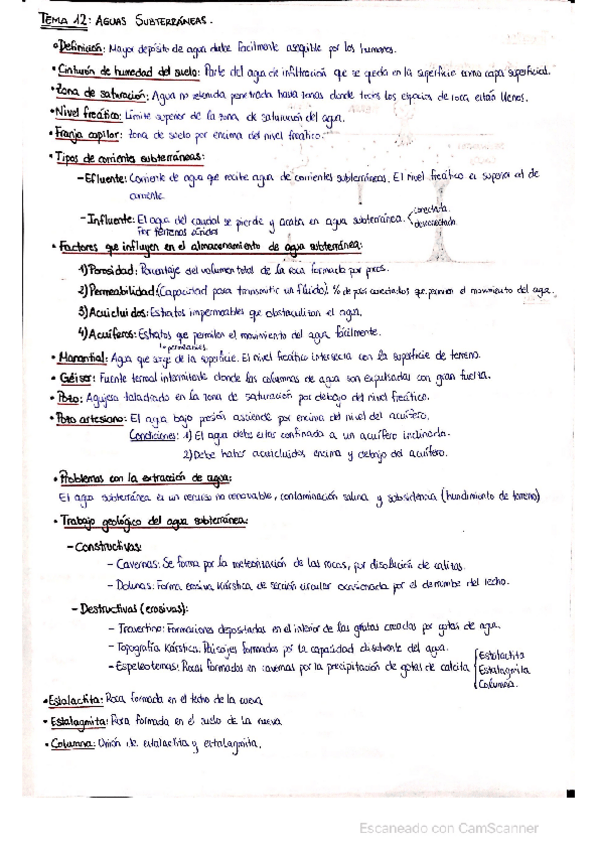 TEMA 12: AGUAS SUBTERRÁNEAS.
• Definición: Mayor depósito de agua dulce facilmente asequible por los humanos.
• Cinturón de humedad del suelo: Parte del agua de infiltración que se queda en la superficie como capa superficial.
• Zona de saturación: Agua no retenida penetrada hacia zonas donde todos los espacios de roca están llenos.
• Nivel freático: Límite superior de la zona de saturación del agua.
• Franja capilar: Zona de suelo por encima del nivel freático.
• Tipos de corrientes subterráneas:
- Efluente: Corriente de agua que recibe agua de corrientes subterráneas. El nivel freático es superior al de
corriente.
- Influente: El agua del caudal se pierde y acaba en agua subterránea. conectada.
Por terrenos áridos desconectada.
• Factores que influyen en el almacenamiento de agua subterránea:
1) Porosidad: Porcentaje del volumen total de la roca formada por poros.
2) Permeabilidad: (Capacidad para transmitir un fluido). % de poros conectados que permiten el movimiento del agua.
3) Acuicluidos: Estratos impermeables que obstaculizan el agua.
4) Acuíferos: Estratos que permiten el movimiento del agua fácilmente.
↳ permeables
• Manantial: Agua que surge de la superficie. El nivel freático intersecta con la superficie de terreno.
• Géiser: Fuente termal intermitente donde las columnas de agua son expulsadas con gran fuerza.
• Pozo: Agujero taladrado en la zona de saturación por debajo del nivel freático.
• Pozo artesiano: El agua bajo presión asciende por encima del nivel del acuífero.
Condiciones: 1) El agua debe estar confinada a un acuífero inclinado.
2) Debe haber acuicluidos encima y debajo del acuífero.
• Problemas con la extracción de agua:
El agua subterránea es un recurso no renovable, contaminación salina y subsidencia (hundimiento de terreno)
• Trabajo geológico del agua subterránea:
- Constructivas:
- Cavernas: Se forma por la meteorización de las rocas, por disolución de calizas.
- Dolinas: Forma erosiva kárstica de sección circular ocasionada por el derrumbe del techo.
- Destructivas (erosivas):
- Travertino: Formaciones depositadas en el interior de las grutas creadas por gotas de agua.
- Topografía Kárstica: Paisajes formados por la capacidad disolvente del agua.
- Espeleotemas: Rocas formadas en cavernas por la precipitación de gotas de calcita Estalactita
Estalagmita
Columna.
• Estalactita: Roca formada en el techo de la cueva
• Estalagmita: Roca formada en el suelo de la cueva
• Columna: Unión de estalactita y estalagmita.
Escaneado con CamScanner